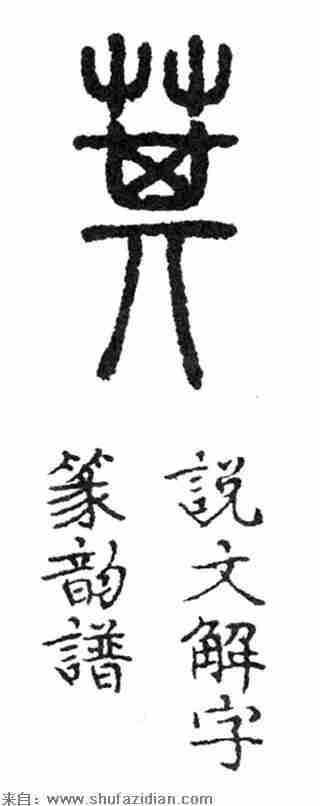 萁
說文解字
篆韵譜
来自：www.shufazidian.com